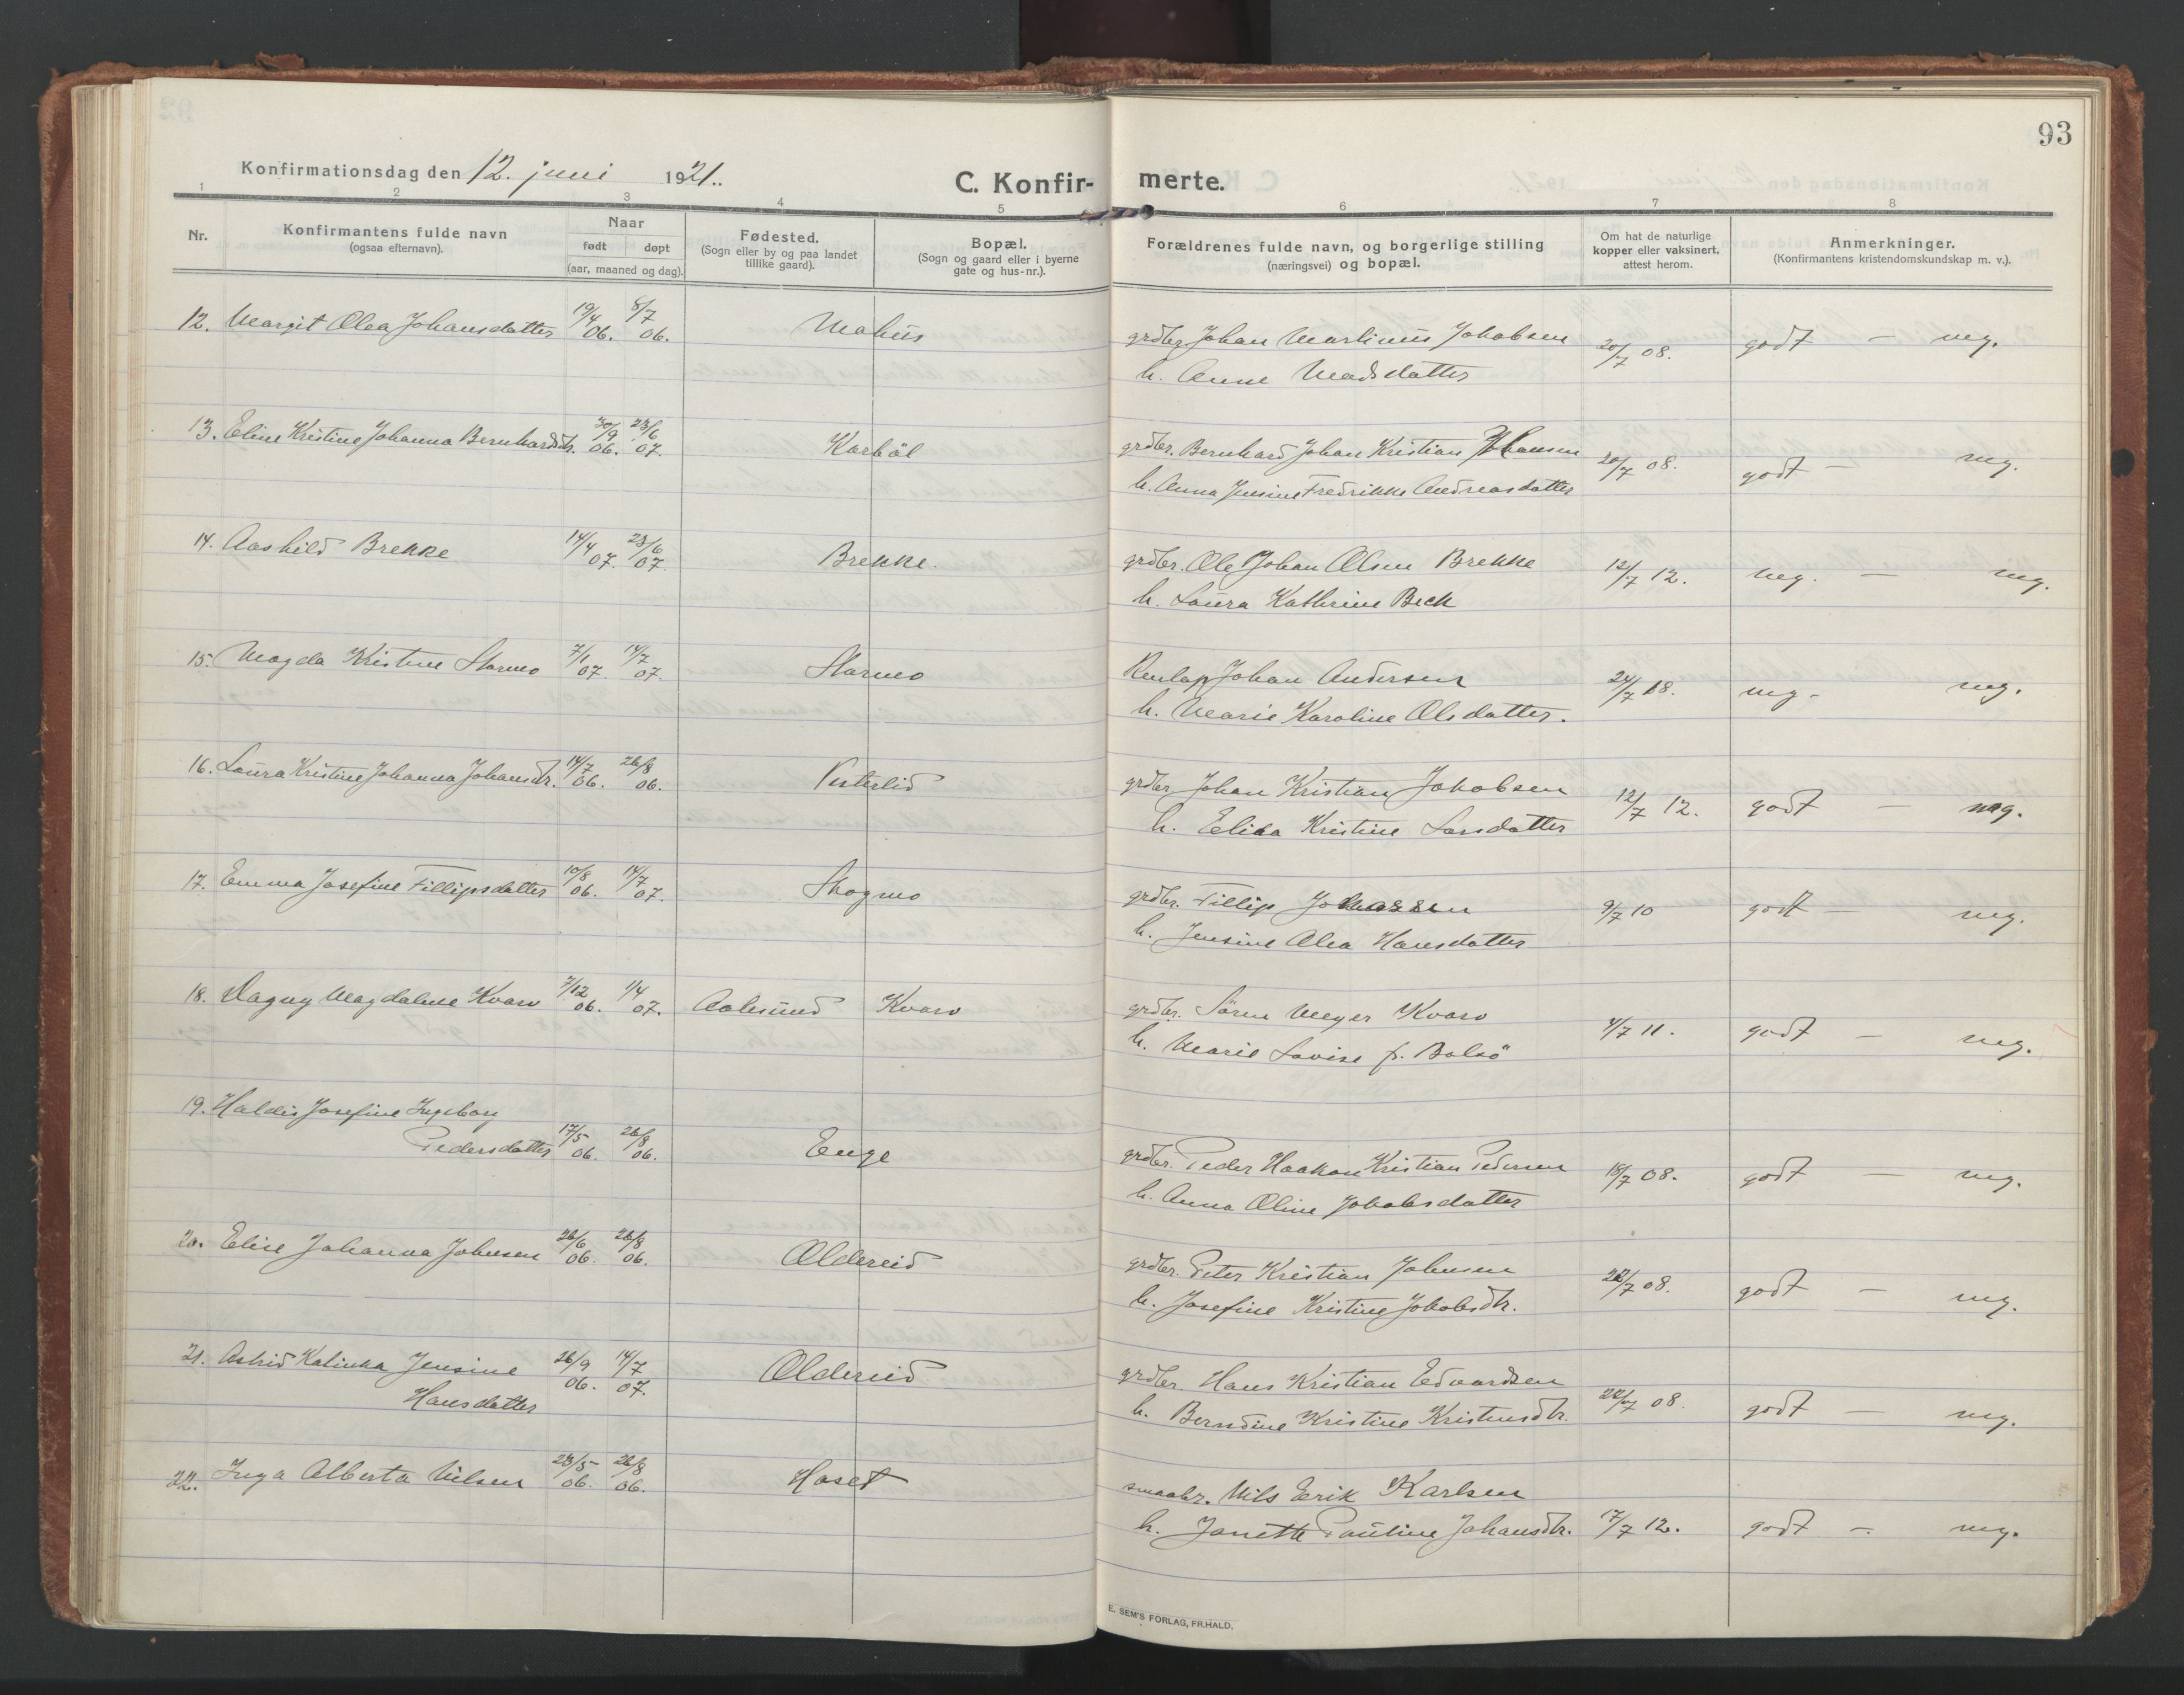 93
Konfirmationsdag den 12. juni 1921.
C. Konfir- merte.
1 2 3 4 5 6 7 8
Nr.
Konfirmantens fulde navn
(ogsaa efternavn).
Naar
født døpt
(aar, maaned og dag).
Fødested.
(Sogn eller by og paa landet
tillike gaard).
Bopæl.
(Sogn og gaard eller i byerne
gate og hus-nr.).
Forældrenes fulde navn, og borgerlige stilling
(næringsvei) og bopæl.
Om hat de naturlige
kopper eller vaksinert,
attest herom.
Anmerkninger.
(Konfirmantens kristendomskundskap m. v.).
12. Margit Olea Johansdatter 19/4 06. 8/7 06. Mohus
grdbr. Johan Martinus Jakobsen 20/7 08. godt — mg.
h. Anne Madsdatter
13. Eline Kristine Johanna Bernhardsdtr. 30/9 06. 23/6 07. Karbøl
grdbr. Bernhard Johan Kristian Hansen 20/7 08. godt — mg.
h. Anna Jensine Fredrikke Andreasdatter
14. Aashild Brekke 14/4 07. 23/6 07. Brekke.
grdbr. Ole Johan Olsen Brekke 12/7 12. mg. — mg.
h. Laura Kathrine Beck
15. Magda Kristine Starmo 7/1 07. 14/7 07. Starmo
Renlap Johan Andersen 24/7 18. mg - mg.
h. Marie Karoline Olsdatter.
16. Laura Kristine Johanna Johansdtr. 14/7 06. 26/8 06. Visterlid
grdbr. Johan Kristian Jakobsen 12/7 12. godt — mg.
h. Elisa Kristine Larsdatter
17. Emma Josefine Fillipsdatter 10/8 06. 14/7 07. Skogmo
grdbr. Fillip Johassen 9/7 10 godt — mg.
h. Jensine Olea Hansdatter
18. Dagny Magdalene Kvarv 7/12 06. 1/4 07. Aalesund Kvarv
grdbr. Sören Meyer Kvarv 4/7 11. godt — mg.
h. Marie Lovise f. Bolsö
19. Haldis Josefine Ingeborg
Pedersdatter 17/5 06. 26/8 06. Enge
grdbr. Peder Haakon Kristian Pedersen 18/7 08. godt — mg.
h. Anna Oline Jakobsdatter
20. Elise Johanna Johnsen 26/6 06. 26/8 06. Oldereid
grdbr. Peter Kristian Johnsen 22/7 08. godt — mg.
h. Josefine Kristine Jakobsdtr.
21. Astrid Kalinka Jensine 26/9 06. 14/7 07. Oldereid
Hansdatter
grdbr. Hans Kristian Edvardsen 22/7 08. godt — mg.
h. Berndine Kristine Kristensdtr.
22. Inga Alberta Nilsen 23/5 06. 26/8 06. Haset
smaabr. Nils Erik Karlsen 17/7 12. godt — mg.
h. Janette Pauline Johansdtr.
E. SEM'S FORLAG, FR.HALD.